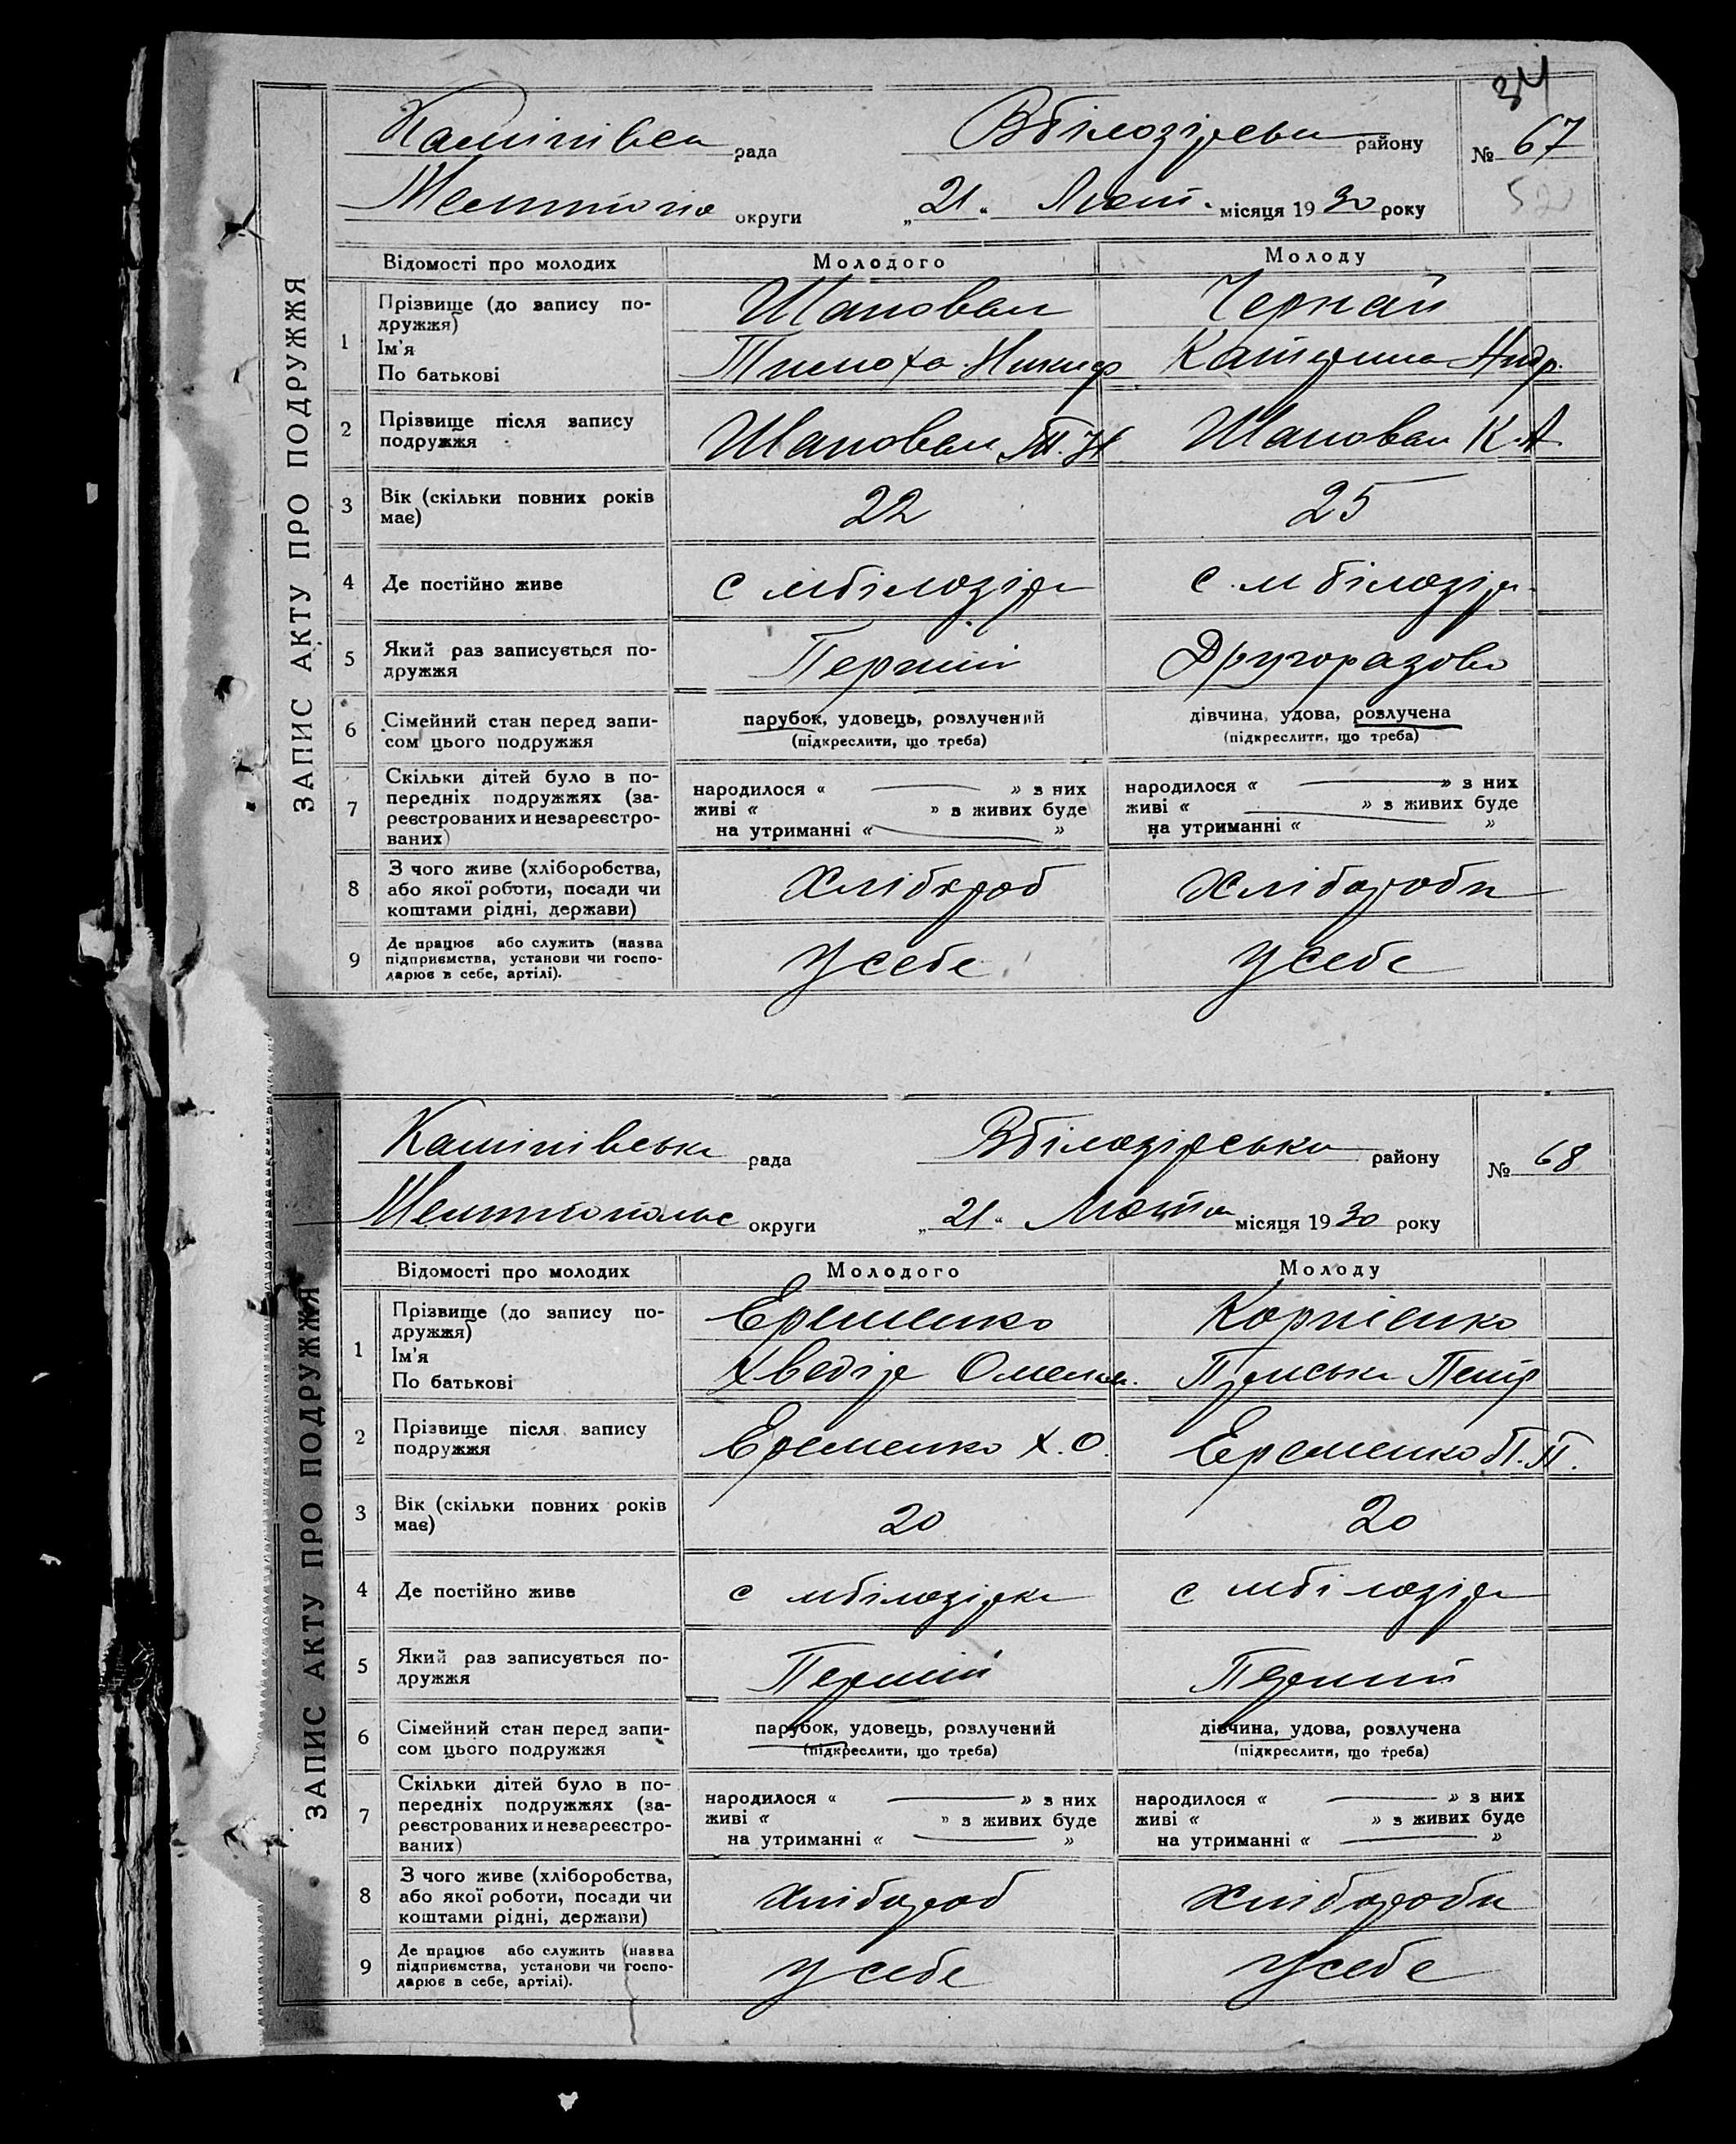 34
Вбілозірськи району № 67
рада
520
округи „21“ Лют. місяця 1930 року
ЗАПИС АКТУ ПРО ПОДРУЖЖЯ
Відомості про молодих Молодого Молоду
1 Прізвище (до запису по-
дружжя) Шаповал
Ім'я
По батькові Тимоха Никиф Катерина Андр.
2 Прізвище після запису
подружжя Шаповал Т.Н Шаповал К.А.
3 Вік (скільки повних років
має) 22 25
4 Де постійно живе с мбілозір с.м білозір.
5 Який раз записується по-
дружжя Перший Другоразово
6 Сімейний стан перед запи-
сом цього подружжя парубок, удовець, розлучений дівчина, удова, розлучена
(підкреслити, що треба) (підкреслити, що треба)
7 Скільки дітей було в по-
передніх подружжях (за-
реєстрованих и незареєстро-
ваних) народилося « — » з них народилося « — » з них
живі « » з живих буде живі « » з живих буде
на утриманні « — » на утриманні « — »
8 З чого живе (хліборобства,
або якої роботи, посади чи
коштами рідні, держави) Хлібороб Хлібороби
9 Де працює або служить (назва
підприємства, установи чи госпо-
дарює в себе, артілі). У себе У себе
рада Вбілозірськи району № 68
округи „21“ Лютня місяця 1930 року
ЗАПИС АКТУ ПРО ПОДРУЖЖЯ
Відомості про молодих Молодого Молоду
1 Прізвище (до запису по-
дружжя) Еременко Корніенко
Ім'я
По батькові Хведір Омельк. Петр
2 Прізвище після запису
подружжя Еременко Х.О. Еременко П.П.
3 Вік (скільки повних років
має) 20 20
4 Де постійно живе с мбілозірка с мбілозір
5 Який раз записується по-
дружжя Перший Перший
6 Сімейний стан перед запи-
сом цього подружжя парубок, удовець, розлучений дівчина, удова, розлучена
(підкреслити, що треба) (підкреслити, що треба)
7 Скільки дітей було в по-
передніх подружжях (за-
реєстрованих и незареєстро-
ваних) народилося « — » з них народилося « — » з них
живі « » з живих буде живі « » з живих буде
на утриманні « — » на утриманні « — »
8 З чого живе (хліборобства,
або якої роботи, посади чи
коштами рідні, держави) Хлібороб Хлібороби
9 Де працює або служить (назва
підприємства, установи чи госпо-
дарює в себе, артілі). У себе У себе